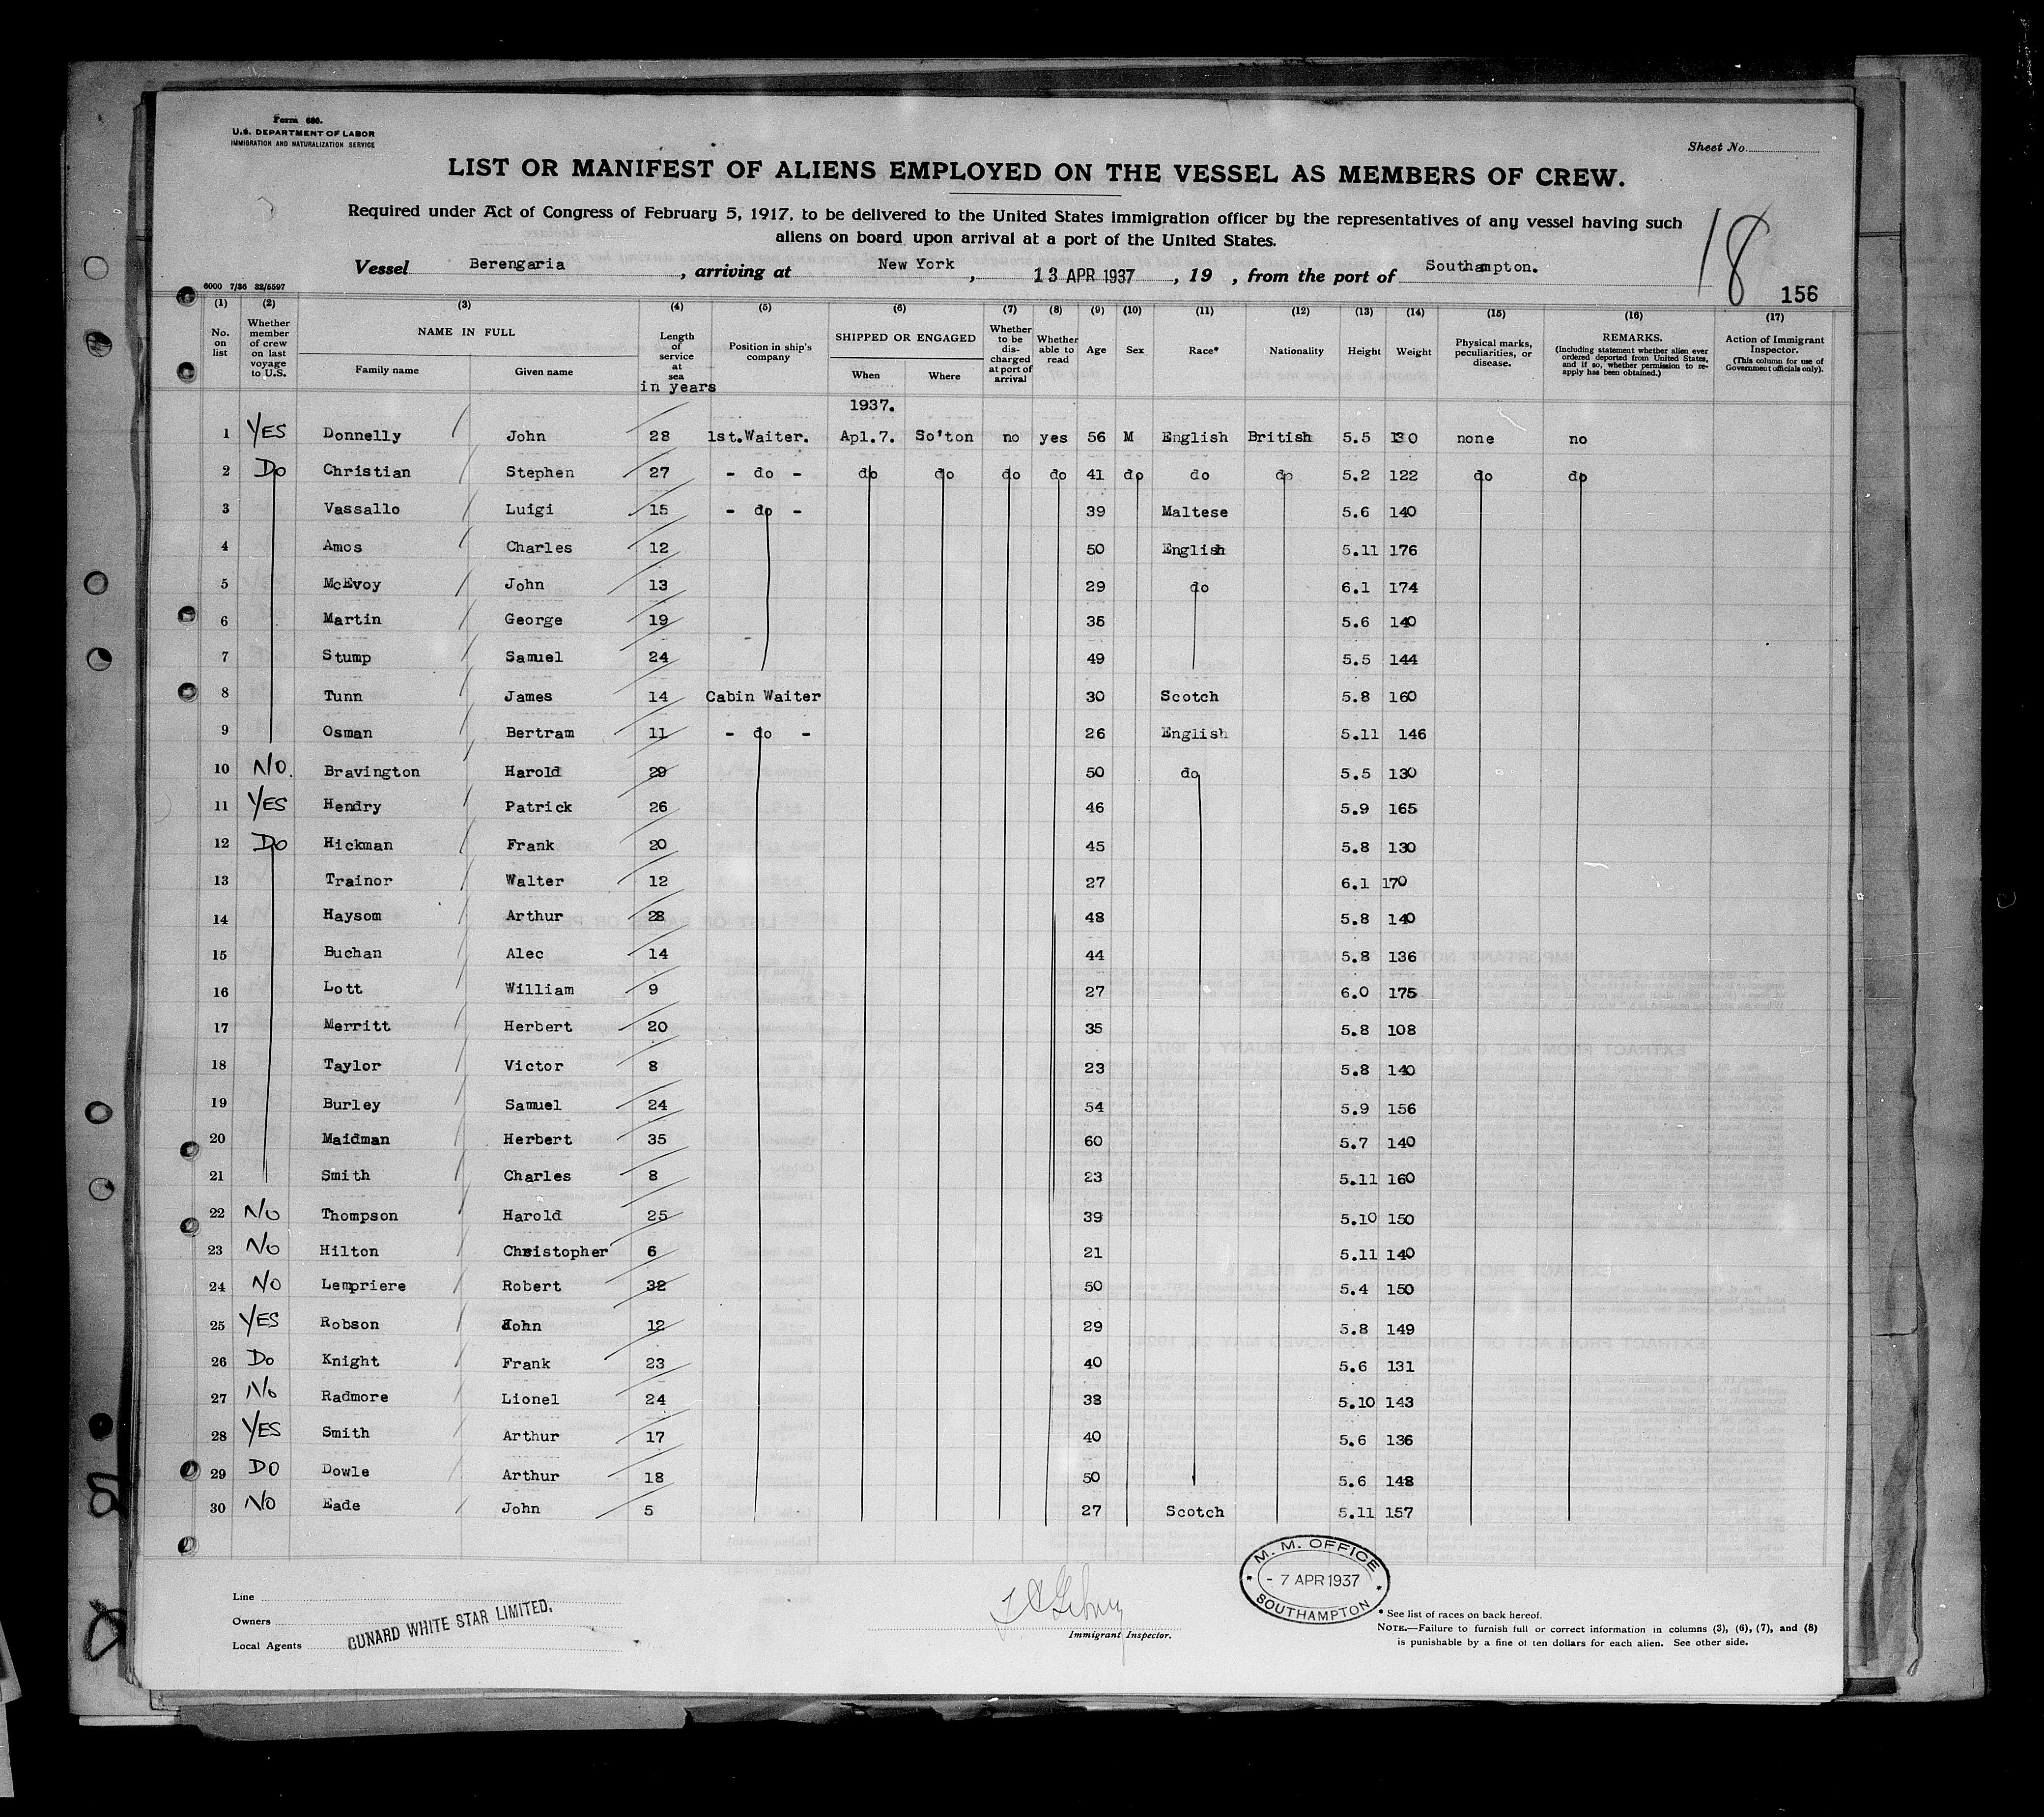 Form 680.
U.S. DEPARTMENT OF LABOR
IMMIGRATION AND NATURALIZATION SERVICE
Sheet No.
LIST OR MANIFEST OF ALIENS EMPLOYED ON THE VESSEL AS MEMBERS OF CREW.
Required under Act of Congress of February 5, 1917, to be delivered to the United States immigration officer by the representatives of any vessel having such
aliens on board upon arrival at a port of the United States.
18
Vessel Berengaria, arriving at New York, 13 APR 1937, 19 , from the port of Southampton.
6000 7/36 32/5597
156
(1) (2) (3) (4) (5) (6) (7) (8) (9) (10) (11) (12) (13) (14) (15) (16) (17)
No. on list
Whether member of crew on last voyage to U.S.
NAME IN FULL
Family name Given name
Length of service at sea in years
Position in ship's company
SHIPPED OR ENGAGED
When Where
Whether to be discharged at port of arrival
Whether able to read
Age
Sex
Race*
Nationality
Height
Weight
Physical marks, peculiarities, or disease.
REMARKS.
(Including statement whether alien ever ordered deported from United States, and if so, whether permission to reapply has been obtained.)
Action of Immigrant Inspector.
(This column for use of Government officials only).
1937.
1 YES Donnelly John 28 1st.Waiter. Apl.7. So'ton no yes 56 M English British 5.5 130 none no
2 Do Christian Stephen 27 - do - do do do do 41 do do do 5.2 122 do do
3 Vassallo Luigi 15 - do - 39 Maltese 5.6 140
4 Amos Charles 12 50 English 5.11 176
5 McEvoy John 13 29 do 6.1 174
6 Martin George 19 35 5.6 140
7 Stump Samuel 24 49 5.5 144
8 Tunn James 14 Cabin Waiter 30 Scotch 5.8 160
9 Osman Bertram 11 - do - 26 English 5.11 146
10 NO. Bravington Harold 29 50 do 5.5 130
11 YES Hendry Patrick 26 46 5.9 165
12 Do Hickman Frank 20 45 5.8 130
13 Trainor Walter 12 27 6.1 170
14 Haysom Arthur 28 48 5.8 140
15 Buchan Alec 14 44 5.8 136
16 Lott William 9 27 6.0 175
17 Merritt Herbert 20 35 5.8 108
18 Taylor Victor 8 23 5.8 140
19 Burley Samuel 24 54 5.9 156
20 Maidman Herbert 35 60 5.7 140
21 Smith Charles 8 23 5.11 160
22 No Thompson Harold 25 39 5.10 150
23 No Hilton Christopher 6 21 5.11 140
24 No Lempriere Robert 32 50 5.4 150
25 YES Robson John 12 29 5.8 149
26 Do Knight Frank 23 40 5.6 131
27 No Radmore Lionel 24 38 5.10 143
28 YES Smith Arthur 17 40 5.6 136
29 DO Dowle Arthur 18 50 5.6 148
30 NO Eade John 5 27 Scotch 5.11 157
Line
Owners
Local Agents
CUNARD WHITE STAR LIMITED.
Immigrant Inspector.
M. M. OFFICE
- 7 APR 1937
SOUTHAMPTON
* See list of races on back hereof.
NOTE.—Failure to furnish full or correct information in columns (3), (6), (7), and (8)
is punishable by a fine of ten dollars for each alien. See other side.